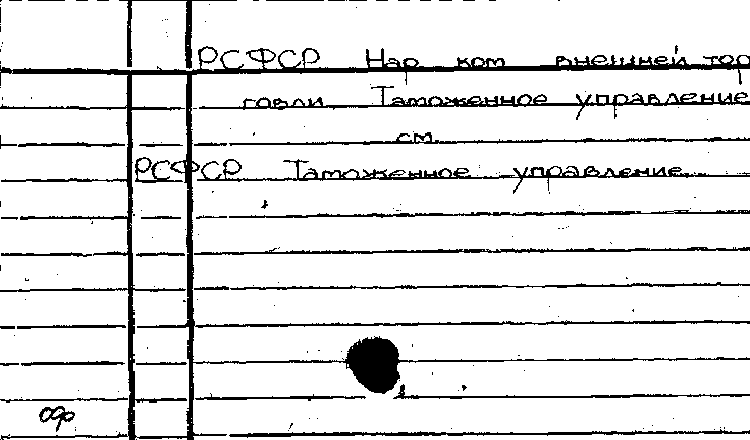 РСФСР Нар ком внешней тор
говли Таможенное управление
см
РСФСР Таможенное управление